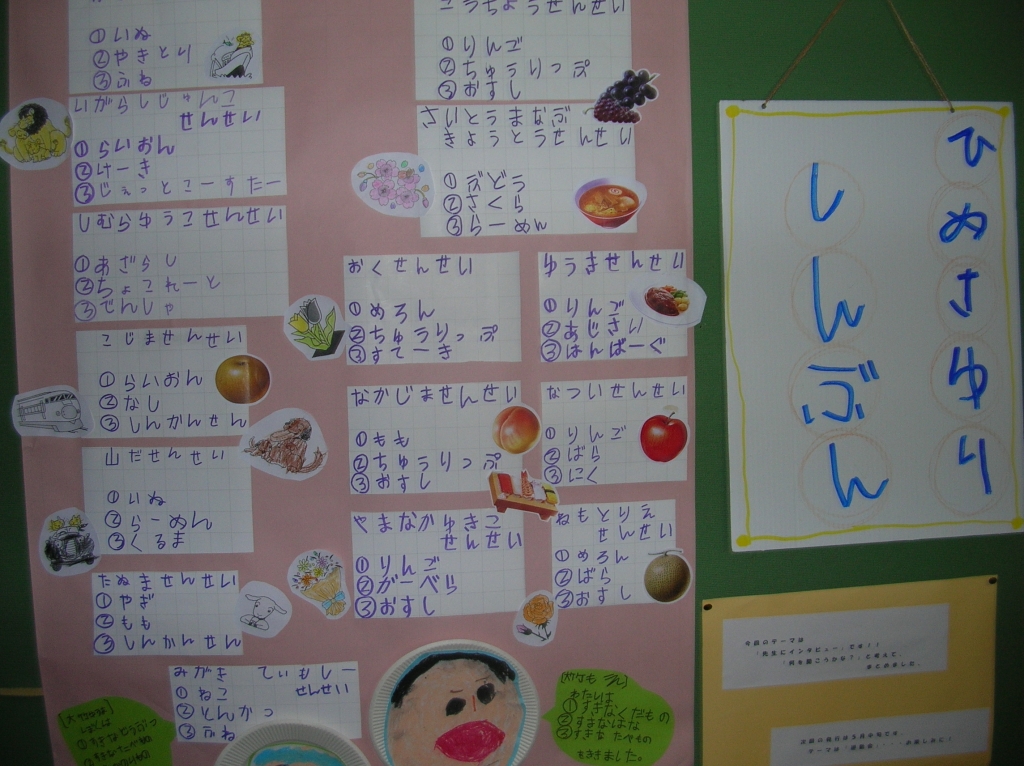 ①いぬ
②やきとり
③ふね
いがらしじゅんこ
せんせい
①らいおん
②けーき
③じぇっとこーすたー
しむらゆうこせんせい
①あざらし
②ちょこれーと
③でんしゃ
こじませんせい
①らいおん
②なし
③しんかんせん
山だせんせい
①いぬ
②らーめん
③くるま
たぬませんせい
①やぎ
②もも
③しんかんせん
みがき てぃもしー
せんせい
①ねこ
②とんかつ
③ふね
こうちょうせんせい
①りんご
②ちゅうりっぷ
③おすし
さいとうまなぶ
きょうとうせんせい
①ぶどう
②さくら
③らーめん
おくせんせい
①めろん
②ちゅうりっぷ
③すてーき
ゆうきせんせい
①りんご
②あじさい
③はんばーぐ
なかじませんせい
①もも
②ちゅうりっぷ
③おすし
なついせんせい
①りんご
②ばら
③にく
やまなかゆきこ
せんせい
①りんご
②がーべら
③おすし
ねもとりえ
せんせい
①めろん
②ばら
③おすし
わたしは
①すきなくだもの
②すきなはな
③すきなたべもの
をききました。
ひめさゆり
しんぶん
今回のテーマは
「先生にインタビュー」です！！
「何を聞こうかな？」と考えて、
まとめました。